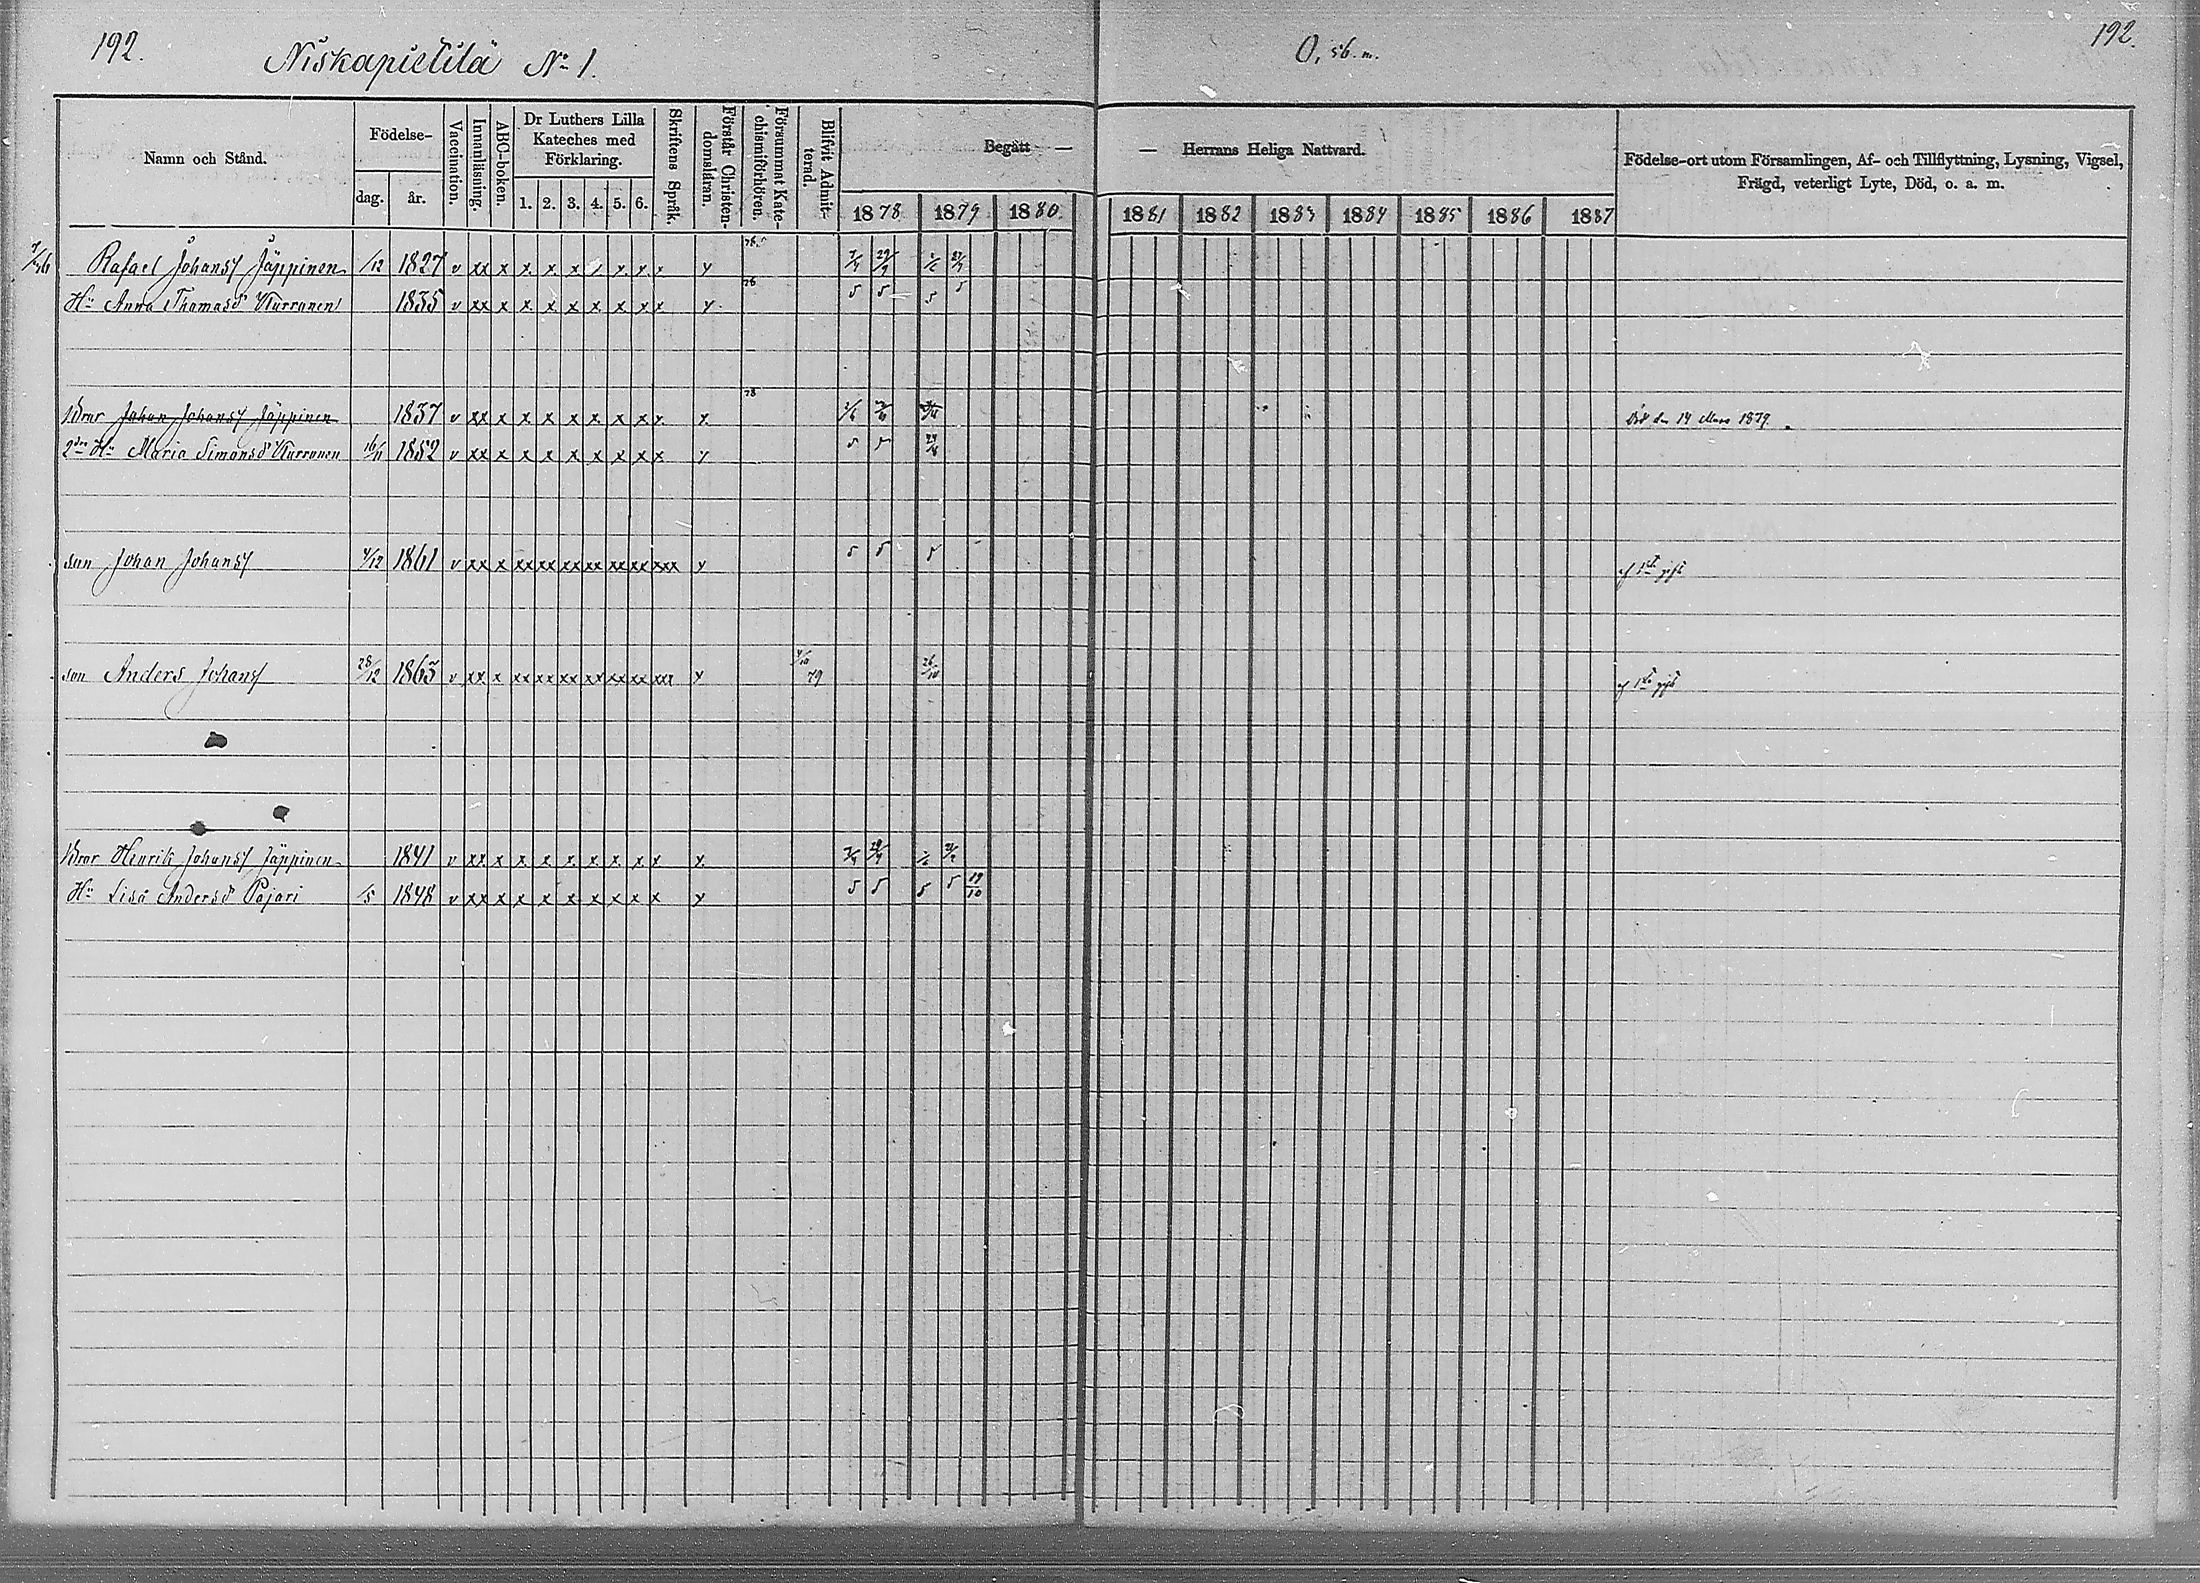 192.
Niskapietilä No 1.
O, sb. m.
192.
Namn och Stånd.
Födelse-
dag.
år.
Vaccination.
Innanläsning.
ABC-boken.
Dr Luthers Lilla
Kateches med
Förklaring.
1. 2. 3. 4. 5. 6.
Skriftens Språk.
Förstår Christen-
domsläran.
Försummat Kate-
chismiförhören.
Blifvit Admit-
terad.
Begått —
— Herrans Heliga Nattvard.
1878 1879 1880
1881 1882 1883 1884 1885 1886 1887
Födelse-ort utom Församlingen, Af- och Tillflyttning, Lysning, Vigsel,
Frägd, veterligt Lyte, Död, o. a. m.
Rafael Johansf Jäppinen /12 1827 v xx x x x x x x x x
Hu Anna Thomasd Kurronen 1835 v xx x x x x x x x x
78
Bror Johan Johansf Jäppinen 1837 v xx x x x x x x x x
Död den 14 Mars 1879.
2dra Hu Maria Simonsd Kurronen 16/11 1852 v xx x x x x x x x x
son Johan Johansf 4/12 1861 v xx x xx xx xx xx xx xx xxx
af 1sta gifte
son Anders Johansf 28/12 1863 v xx x xx xx xx xx xx xx xxx
79 26/10
af 1sta gifte
Bror Henrik Johansf Jäppinen 1841 v xx x x x x x x x x
Hu Lisa Andersd Pajari /5 1848 v xx x x x x x x x x
5 5 5 5 19/10